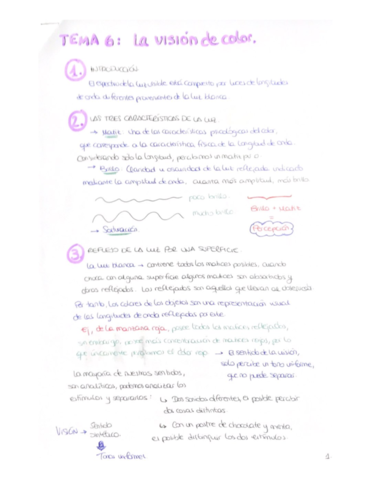 TEMA 6: La visión de color.
1. INTRODUCCIÓN
El espectro de la luz visible está compuesto por luces de longitudes
de onda diferentes provenientes de la luz blanca.
2. LAS TRES CARACTERÍSTICAS DE LA LUZ
→ Matiz. Una de las características psicológicas del color,
que corresponde a la característica física de la longitud de onda.
Considerando solo la longitud, percibimos un matiz
→ Brillo. Claridad u oscuridad de la luz reflejada indicado
mediante la amplitud de onda. Cuanta más amplitud, más brillo
poco brillo
mucho brillo
Brillo + Matiz
=
Percepción
→ Saturación
3. REFLEJO DE LA LUZ POR UNA SUPERFICIE.
La luz blanca → contiene todos los matices posibles, cuando
choca con alguna superficie algunos matices son absorbidos y
otros reflejados. Los reflejados son aquellos que
Por tanto, los colores de los objetos son una representación visual
de las longitudes de onda reflejadas por ella.
ej, de la manzana roja, posee todos los matices reflejados,
sin embargo, de matices rojos, por lo
que únicamente percibimos el color rojo
→ El sentido de la visión,
solo percibe un tono uniforme,
que no puede separar.
La mayoría de nuestros sentidos,
son analíticos, podemos analizar los
estímulos y separarlos:
↳ Dos sonidos diferentes, es posible percibir
dos cosas distintas
↳ Con un postre de chocolate y menta,
es posible distinguir los dos estímulos
VISIÓN → Sentido
sintético
Tonos uniformes